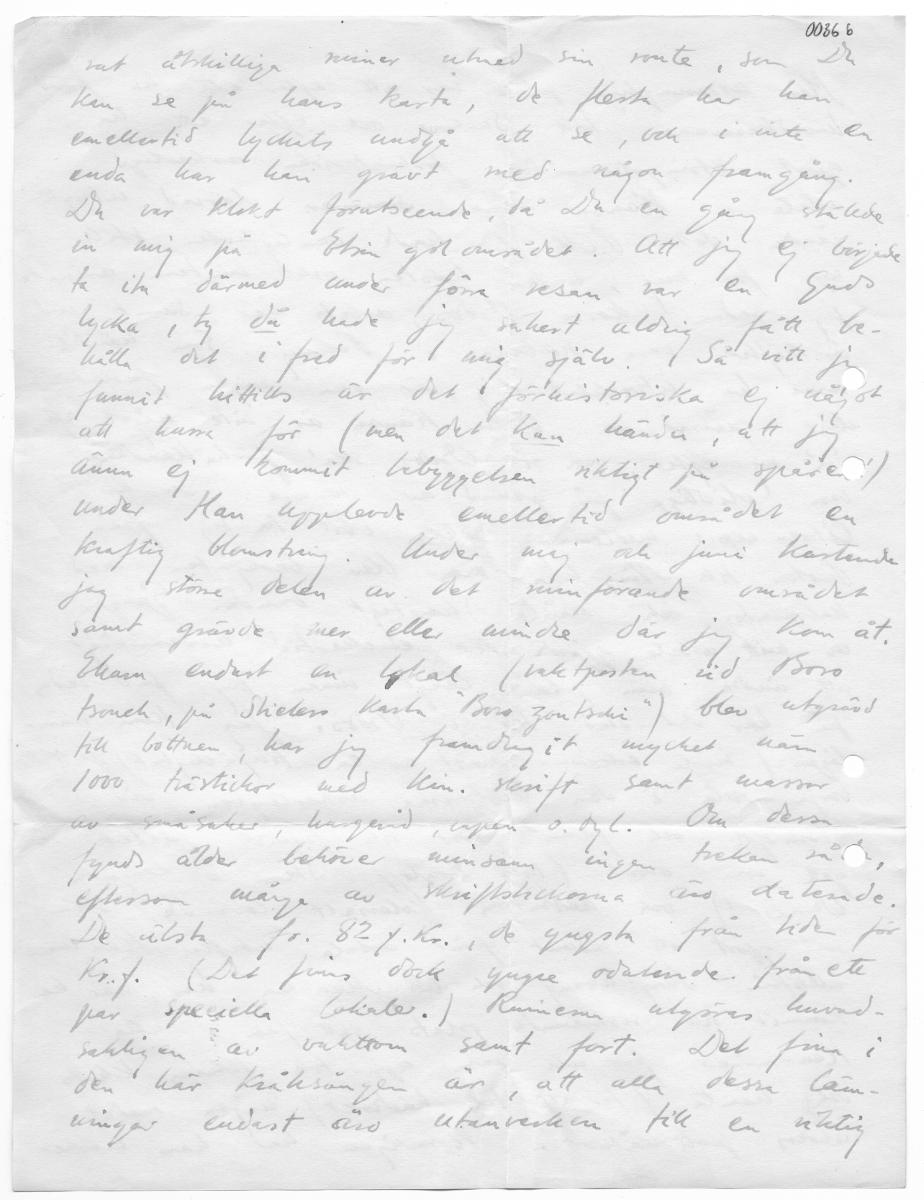 00366
rat åtskilliga ruiner utmed sin route, som Du
kan se på hans karta, de flesta har han
emellertid lyckats undgå att se, och i inte en
enda har han grävt med någon framgång.
Du var klokt förutseende, då Du en gång ställde
in mig på Etsin gol området. Att jag ej började
ta itu därmed under förra resan var en Guds
lycka, ty då hade jag säkert aldrig fått be-
hålla det i fred för mig själv. Så vitt jag
funnit hittills är det förhistoriska ej något
att hurra för (men det kan hända, att jag
ännu ej kommit bebyggelsen riktigt på spåren!)
under Han upplevde emellertid området en
kraftig blomstring. Under maj och juni karterade
jag större delen av det ruinförande området
samt grävde mer eller mindre där jag kom åt.
Ehuru endast en lokal (vaktposten vid Boro
tsonch, på Stielers karta "Boro zontschi") blev utgrävd
till bottnen, har jag framdragit mycket nära
1000 trästickor med kin. skrift samt massor
av småsaker, husgeråd, vapen o. dyl. Om dessa
fynds ålder behöver minsann ingen tvekan råda,
eftersom många av skriftstickorna äro daterade.
De älsta fr. 82 f. Kr., de yngsta från tiden för
Kr. f. (Det finns dock yngre odaterade från ett
par speciella lokaler.) Ruinerna utgöras huvud-
sakligen av vakttorn samt fort. Det fina i
den här kråksången är, att alla dessa läm-
ningar endast äro utanverken till en riktig